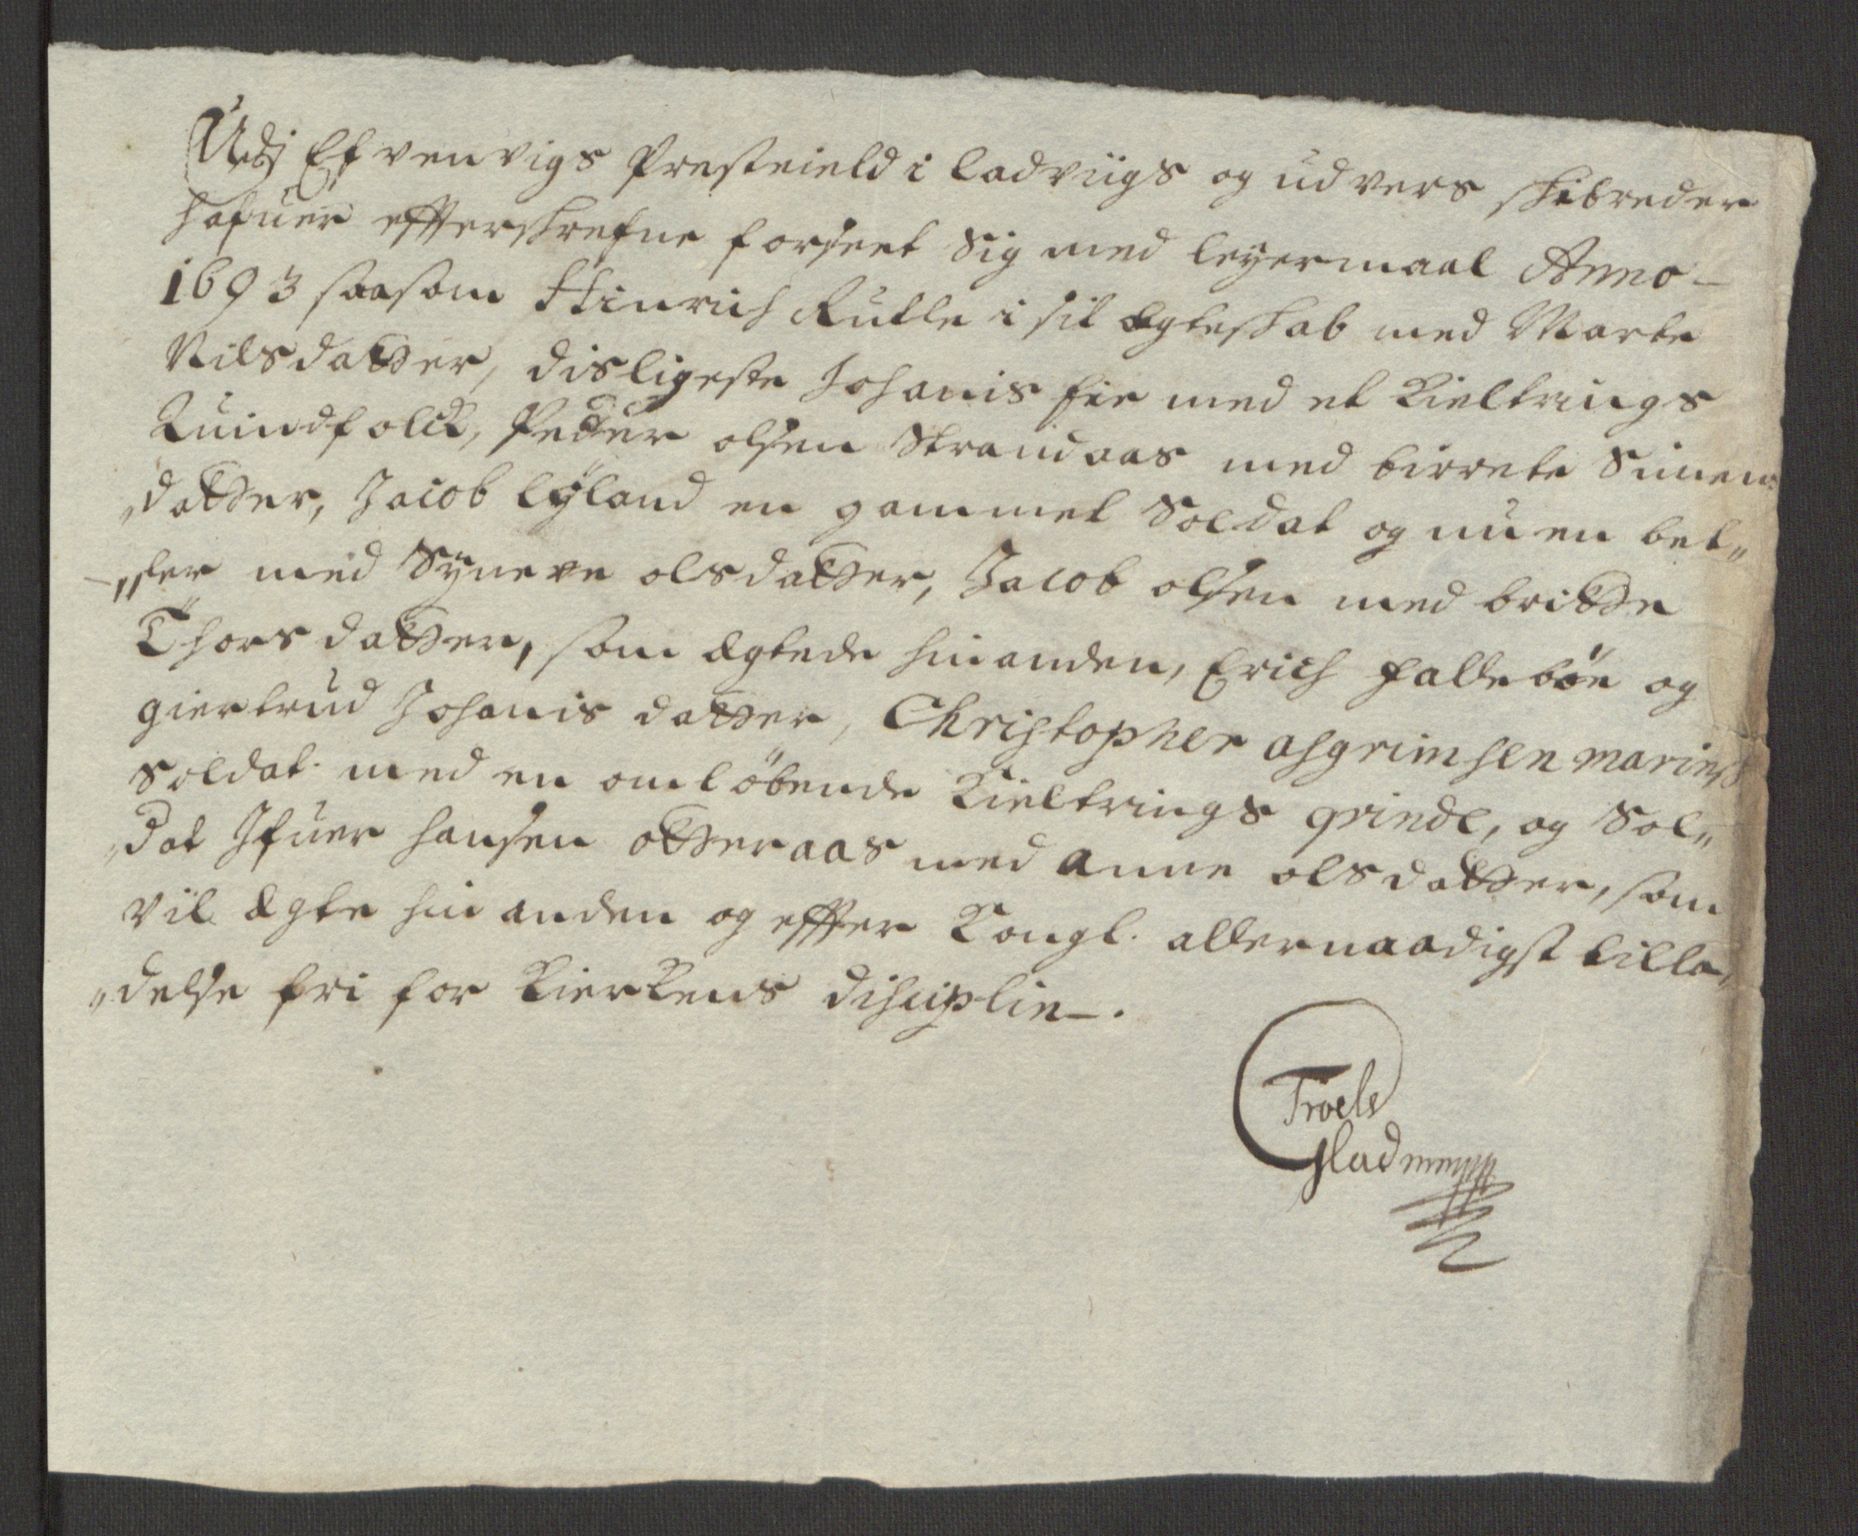 Udj Efvenvigs Presteield i Ladviigs og udvers skibreder
hafuer effterskrefne forseet Sig med leyermaal Anno
1693 saasom Hinrich Rutle i sit ægteskab med Marte
Nilsdatter, disligeste Johanis fie med et Kieltrings
Quindfolck, Peder olsen Strandaas med birrete Simens
datter, Jacob Lyland en gammel Soldat og nu en bet„
„ler med Syneve olsdatter, Jacob olsen med britte
Thorsdatter, som ægtede hinanden, Erich hallebøe og
giertrud Johanis datter, Christopher asgrimsen marinss
Soldat med en omløbende Kieltrings qvinde, og Sol„
„dat Ifuer hansen otteraas med anne olsdatter, som
vil ægte hinanden og effter Kongl. allernaadigst tilla„
„delse fri for Kierkens disciplin.
Troels
Glad